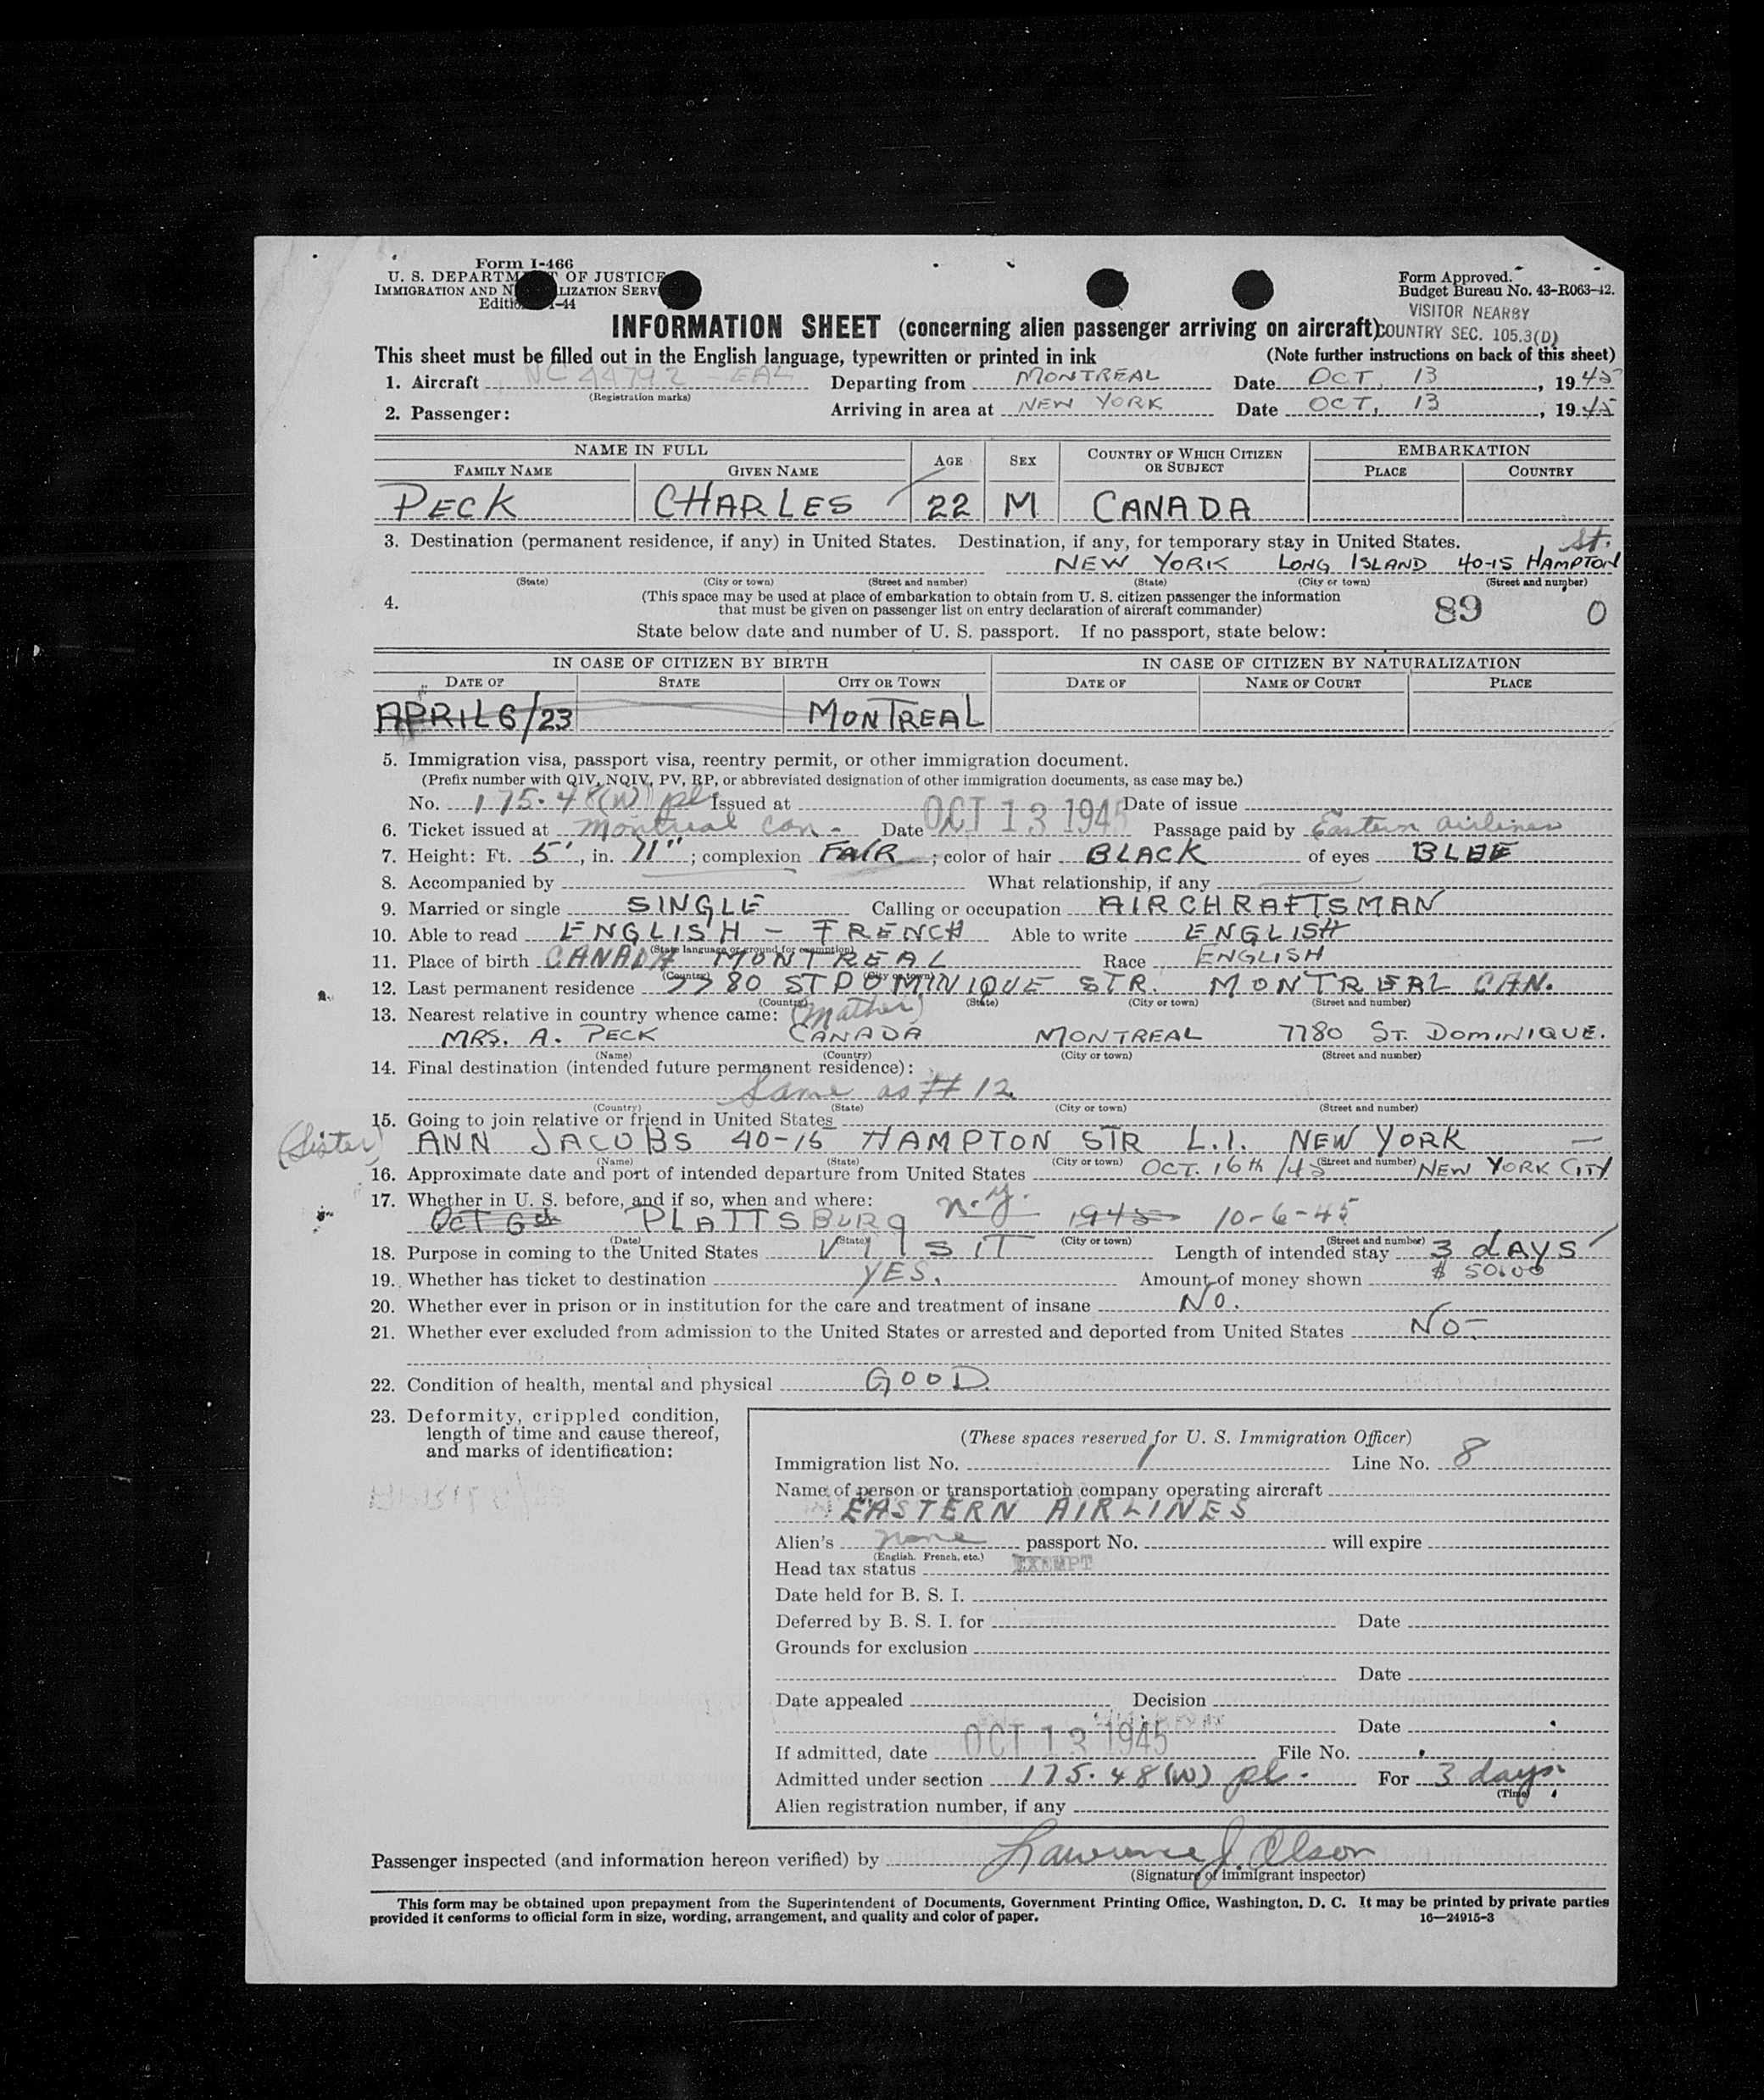 Form I-466
U. S. DEPARTM OF JUSTICE
IMMIGRATION AND N LIZATION SERV
Editio -44
Form Approved.
Budget Bureau No. 43-R063-42.
VISITOR NEARBY
COUNTRY SEC. 105.3(D)
INFORMATION SHEET (concerning alien passenger arriving on aircraft)
This sheet must be filled out in the English language, typewritten or printed in ink (Note further instructions on back of this sheet)
1. Aircraft NC 44792 - EAL Departing from MONTREAL Date OCT. 13, 1945
(Registration marks)
2. Passenger: Arriving in area at NEW YORK Date OCT. 13, 1945
NAME IN FULL AGE SEX COUNTRY OF WHICH CITIZEN OR SUBJECT EMBARKATION
FAMILY NAME GIVEN NAME PLACE COUNTRY
PECK CHARLES 22 M CANADA
3. Destination (permanent residence, if any) in United States. Destination, if any, for temporary stay in United States. St.
NEW YORK LONG ISLAND 40-15 HAMPTON
(State) (City or town) (Street and number) (State) (City or town) (Street and number)
4. (This space may be used at place of embarkation to obtain from U. S. citizen passenger the information
that must be given on passenger list on entry declaration of aircraft commander) 89 0
State below date and number of U. S. passport. If no passport, state below:
IN CASE OF CITIZEN BY BIRTH IN CASE OF CITIZEN BY NATURALIZATION
DATE OF STATE CITY OR TOWN DATE OF NAME OF COURT PLACE
APRIL 6/23 MONTREAL
5. Immigration visa, passport visa, reentry permit, or other immigration document.
(Prefix number with QIV, NQIV, PV, RP, or abbreviated designation of other immigration documents, as case may be.)
No. 175.48(W) pl Issued at Date of issue
6. Ticket issued at Montreal Can - Date OCT 13 1945 Passage paid by Eastern Airlines
7. Height: Ft. 5', in. 11"; complexion FAIR; color of hair BLACK of eyes BLUE
8. Accompanied by What relationship, if any
9. Married or single SINGLE Calling or occupation AIRCHRAFTSMAN
10. Able to read ENGLISH - FRENCH Able to write ENGLISH
(State language or ground for exemption)
11. Place of birth CANADA MONTREAL Race ENGLISH
(Country) (City or town)
12. Last permanent residence 7780 ST DOMINIQUE STR. MONTREAL CAN.
(Country) (State) (City or town) (Street and number)
13. Nearest relative in country whence came: (Mother)
MRS. A. PECK CANADA MONTREAL 7780 ST. DOMINIQUE.
(Name) (Country) (City or town) (Street and number)
14. Final destination (intended future permanent residence):
Same as # 12.
(Country) (State) (City or town) (Street and number)
15. Going to join relative or friend in United States
(Sister) ANN JACOBS 40-15 HAMPTON STR L.I. NEW YORK —
(Name) (State) (City or town) (Street and number)
16. Approximate date and port of intended departure from United States OCT. 16th /45 NEW YORK CITY
17. Whether in U. S. before, and if so, when and where:
OCT 6th PLATTSBURG N.Y. 1945 10-6-45
(Date) (State) (City or town) (Street and number)
18. Purpose in coming to the United States VISIT Length of intended stay 3 dAYS
19. Whether has ticket to destination YES. Amount of money shown $ 50.00
20. Whether ever in prison or in institution for the care and treatment of insane NO.
21. Whether ever excluded from admission to the United States or arrested and deported from United States NO-
22. Condition of health, mental and physical GOOD.
23. Deformity, crippled condition,
length of time and cause thereof,
and marks of identification:
(These spaces reserved for U. S. Immigration Officer)
Immigration list No. 1 Line No. 8
Name of person or transportation company operating aircraft
EASTERN AIRLINES
Alien's none passport No. will expire
(English. French, etc.)
Head tax status EXEMPT
Date held for B. S. I.
Deferred by B. S. I. for Date
Grounds for exclusion
Date
Date appealed Decision
Date
If admitted, date OCT 13 1945 File No.
Admitted under section 175.48(W) pl. For 3 days.
(Time)
Alien registration number, if any
Passenger inspected (and information hereon verified) by Lawrence J. Olson
(Signature of immigrant inspector)
This form may be obtained upon prepayment from the Superintendent of Documents, Government Printing Office, Washington, D. C. It may be printed by private parties
provided it conforms to official form in size, wording, arrangement, and quality and color of paper. 16—24915-3